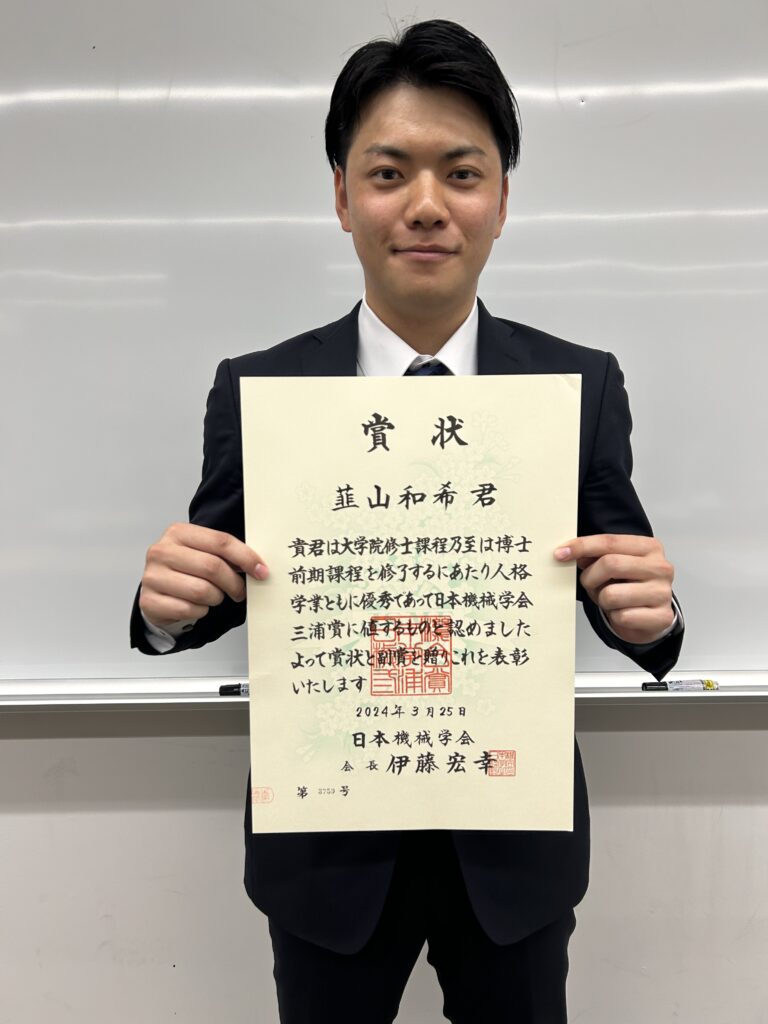 賞状
韮山和希君
貴君は大学院修士課程乃至は博士
前期課程を修了するにあたり人格
学業ともに優秀であって日本機械学会
三浦賞に値するものと認めました
よって賞状と副賞を贈りこれを表彰
いたします
2024年3月25日
日本機械学会
会長 伊藤宏幸
第 3759 号